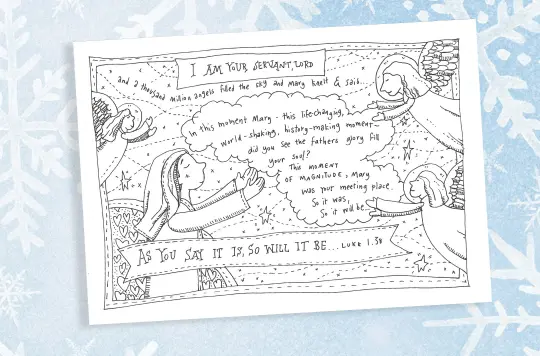 I AM YOUR SERVANT, LORD
and a thousand million angels filled the sky and Mary knelt & said...
In this moment Mary - this life-changing,
world-shaking, history-making moment -
did you see the fathers glory fill
your soul?
This MOMENT
OF MAGNITUDE, Mary
was your meeting place.
So it was,
So it will be...
AS YOU SAY IT IS, SO WILL IT BE... LUKE 1.38